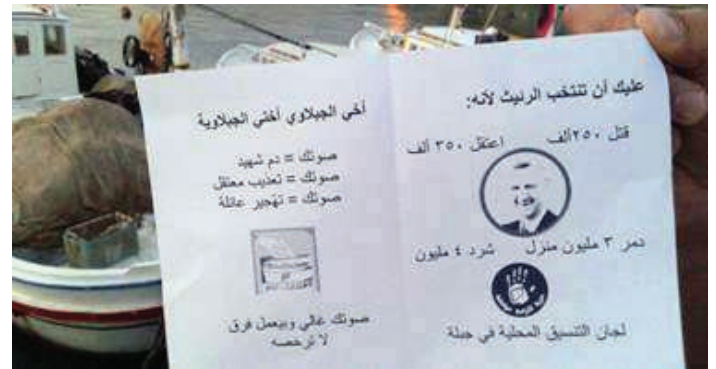 عليك أن تنتخب الرئيث لأنه:
قتل ٢٥٠ ألف اعتقل ٣٥٠ ألف
دمر ٣ مليون منزل شرد ٤ مليون
لجان التنسيق المحلية في جبلة
أخي الجبلاوي أختي الجبلاوية
صوتك = دم شهيد
صوتك = تعذيب معتقل
صوتك = تهجير عائلة
صوتك غالي وبيعمل فرق
لا ترخصه